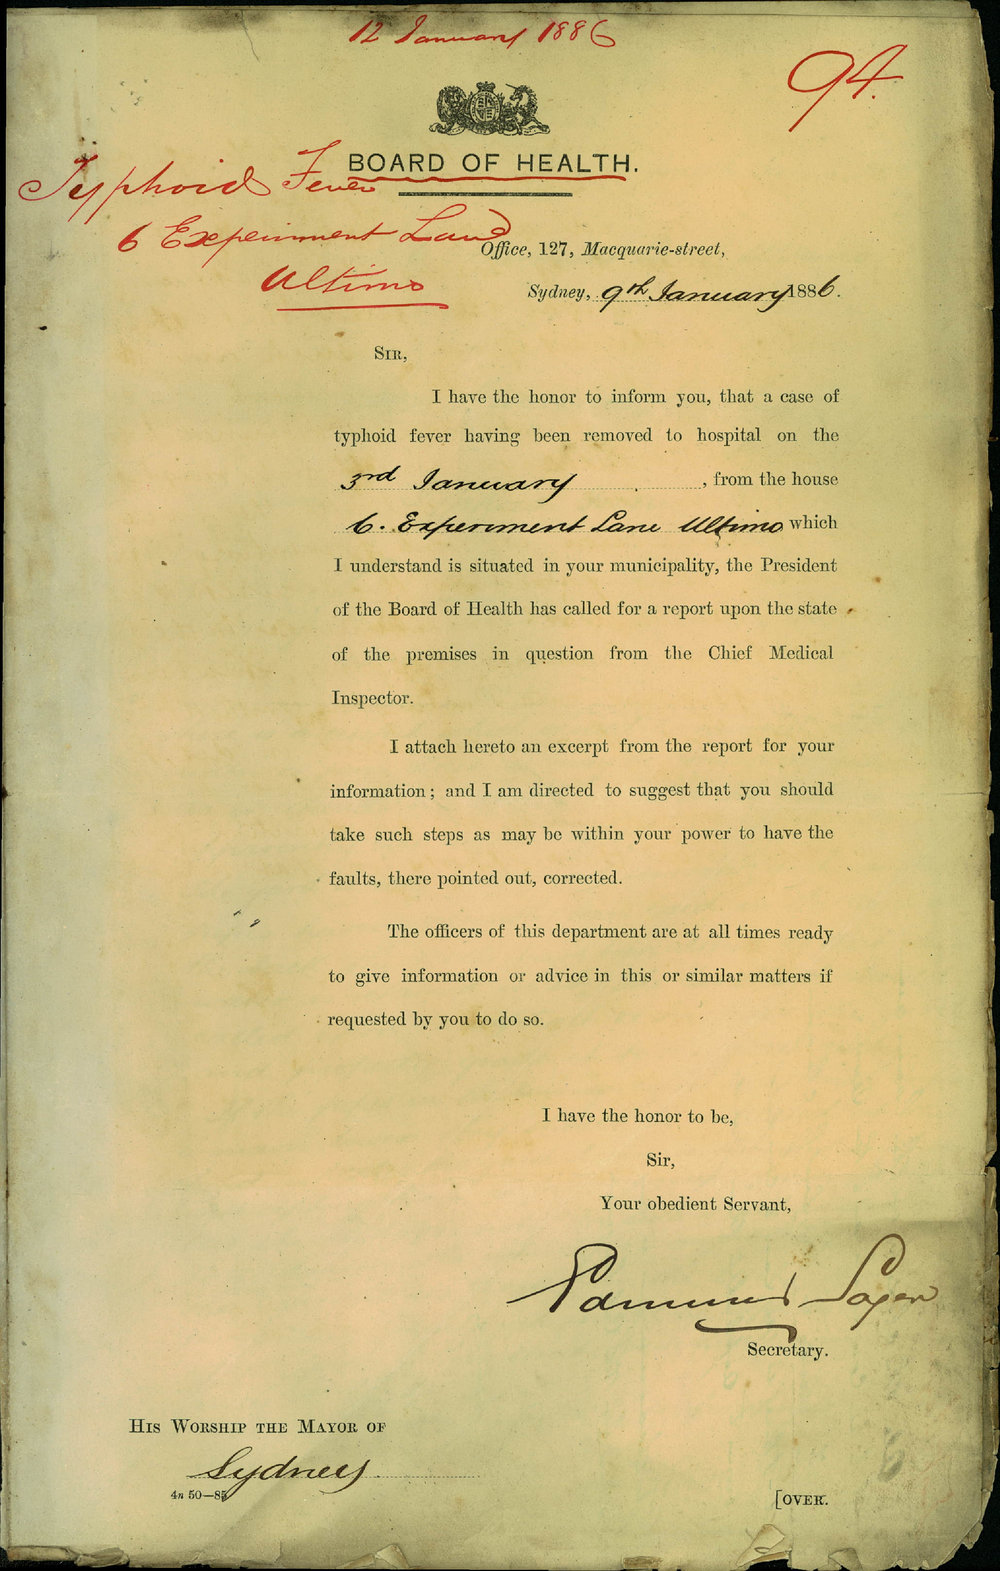 12 January 1886
94.
BOARD OF HEALTH.
Typhoid Fever
6 Experiment Lane
Ultimo
Office, 127, Macquarie-street,
Sydney, 9th January 1886.
SIR,
I have the honor to inform you, that a case of
typhoid fever having been removed to hospital on the
3rd January, from the house
6. Experiment Lane Ultimo which
I understand is situated in your municipality, the President
of the Board of Health has called for a report upon the state
of the premises in question from the Chief Medical
Inspector.
I attach hereto an excerpt from the report for your
information; and I am directed to suggest that you should
take such steps as may be within your power to have the
faults, there pointed out, corrected.
The officers of this department are at all times ready
to give information or advice in this or similar matters if
requested by you to do so.
I have the honor to be,
Sir,
Your obedient Servant,
Edmund Sager
Secretary.
HIS WORSHIP THE MAYOR OF
Sydney
4n 50—85
[OVER.